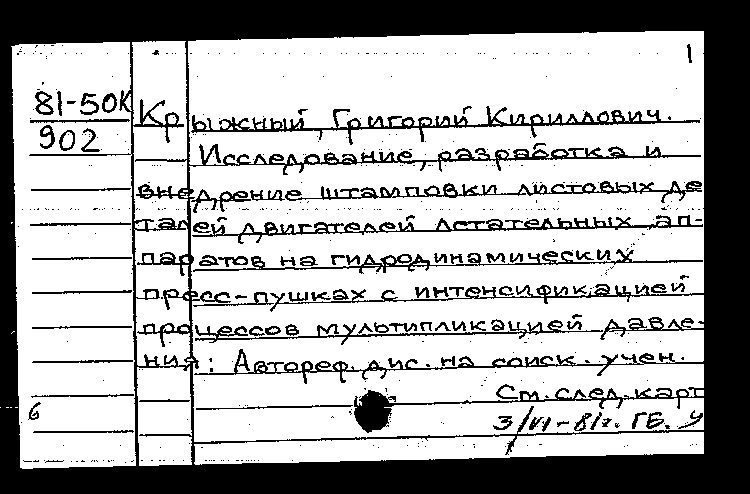 1
81-50К
902
Крыжный, Григорий Кириллович.
Исследование, разработка и
внедрение штамповки листовых де
талей двигателей летательных ап-
паратов на гидродинамических
пресс-пушках с интенсификацией
процессов мультипликацией давле-
ния: Автореф. дис. на соиск. учен.
См. след. карт
6
3/VI-81г. ГБ. У